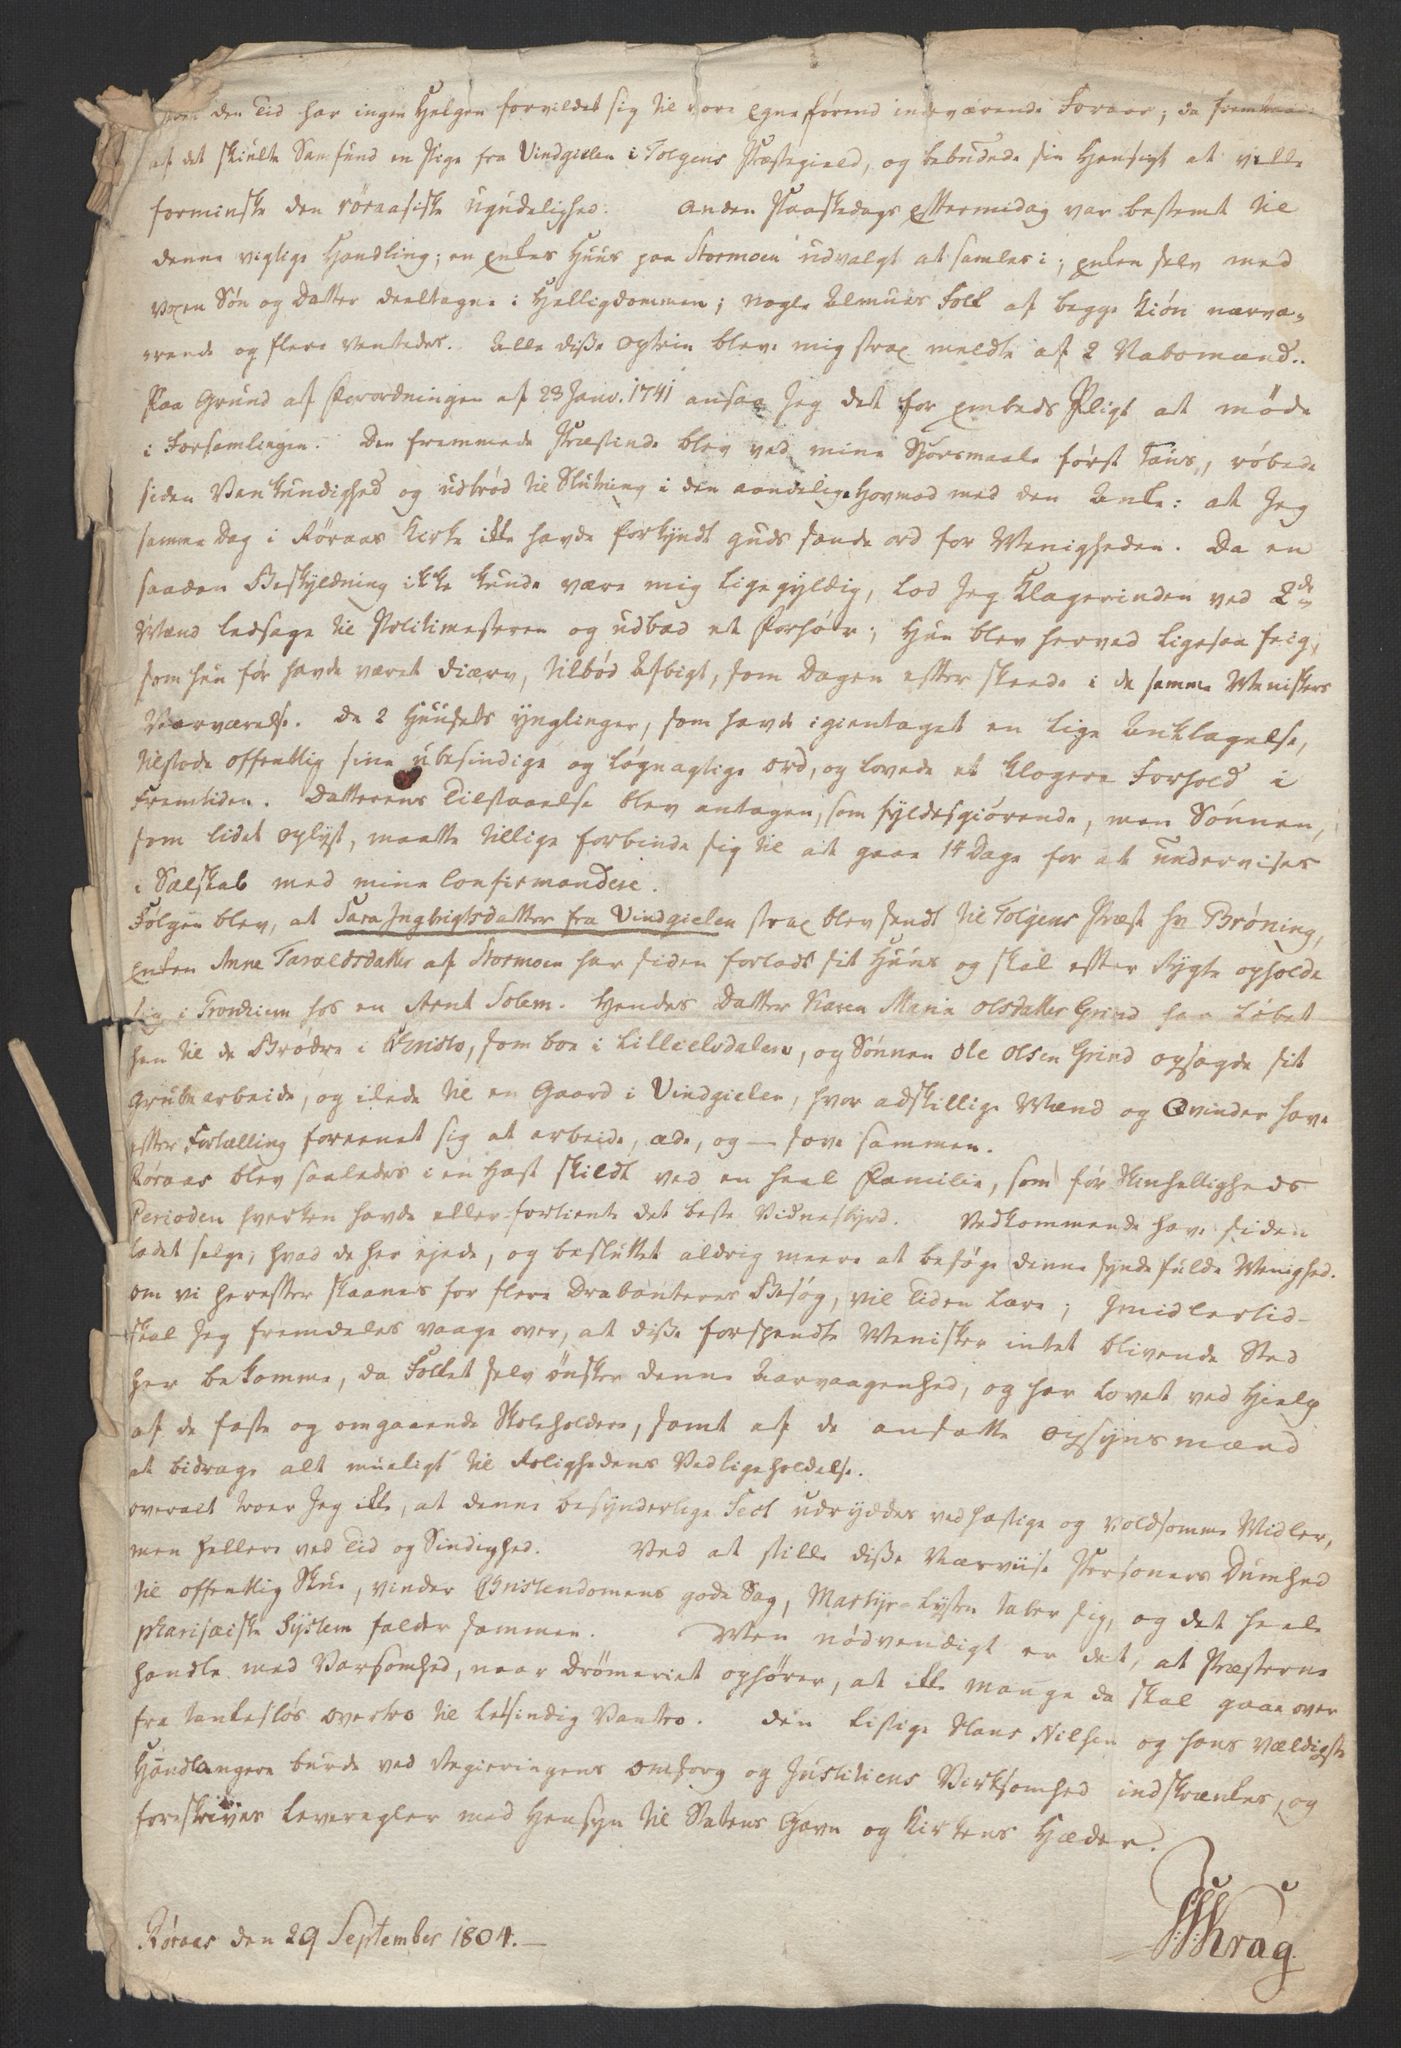 den Tid har ingen Helgen forvildet sig til vore Egne førend indeværende Foraar; da fremkom
af det skiulte Samfund en Pige fra Vindgielen i Tolgens Præstegield, og bebudede sin Hensigt at ville
forminske den röraasiske Ugudelighed. Anden Paaskedags Eftermidag var bestemt til
denne vigtige Handling; en Enkes Huus paa Stormoen udvalgt at samles i; Enken selv med
voxen Sön og Datter deeltagne i Helligdommen; nogle Almues Folk af begge Kiön nærvæ-
rende og flere ventedes. Alle disse Optrin bleve mig strax meldte af 2 Nabomænd.
Paa Grund af Forordningen af 23 Janv. 1741 ansaae Jeg det for Embeds Pligt at møde
i Forsamlingen. Den fremmede Præstinde blev ved mine Spörsmaale først Taus, röbede
siden Vankundighed og udbröd til Slutning i den aandelige Hovmod med den Anke: at Jeg
samme Dag i Röraas Kirke ikke havde forkyndt Guds sande Ord for Menigheden. Da en
saadan Beskyldning ikke kunde være mig ligegyldig, lod Jeg Klagerinden ved 2de
Mænd ledsage til Politimesteren og udbad et Forhör; Hun blev herved ligesaa feig,
som hun för havde været diærv, tilböd Afbigt, som Dagen efter skeede i de samme Meniskers
Nærværelse. De 2 Huusets Ynglinger, som havde igientaget en lige Anklagelse,
tilstode offentlig sine ubesindige og lögnagtige Ord, og lovede et klogere Forhold i
Fremtiden. Datterens Tilstaaelse blev antagen, som fyldesgiörende, men Sönnen,
som lidet oplyst, maatte tillige forbinde sig til at gaae 14 Dage for at undervises
i Sælskab med mine Confirmandere.
Fölgen blev, at Sara Ingbrigtsdatter fra Vindgielen strax blev sendt til Tolgens Præst Hr Bröning,
Enken Anne Taraldsdatter af Stormoen har siden forladt sit Huus og skal efter Rygte opholde
sig i Trondhiem hos en Arnt Solem. Hendes Datter Karen Maria Olsdatter Grind har löbet
hen til de Brödre i Christo, som boe i Lilleelvdalen, og Sönnen Ole Olsen Grind opsagde sit
Grubearbeide, og ilede til en Gaard i Vindgielen, hvor adskillige Mænd og Qvinder have
efter Fortælling foreenet sig at arbeide, æde, og — sove sammen.
Röraas blev saaledes i en Hast skildt ved en heel Familie, som för Skinhelligheds
Perioden hverken havde eller fortiente det beste Vidnesbyrd. Vedkommende have siden
ladet selge, hvad de her ejede, og besluttet aldrig meere at besöge denne syndefulde Menighed.
Om vi herefter skaanes for flere Drabanteres Besög, vil Tiden lære; Imidlertid
skal Jeg fremdeles vaage over, at disse forspendte Menisker intet blivende Sted
her bekomme, da Folket selv önsker denne Aarvaagenhed, og har lovet ved Hielp
af de faste og omgaaende Skoleholdere, samt af de ansatte Opsynsmænd
at bidrage alt mueligt til Rolighedens Vedligeholdelse.
Overalt troer Jeg ikke, at denne besynderlige Sect udryddes ved hastige og voldsomme Midler,
men hellere ved Tid og Sindighed. Ved at stille disse Næsviise Personers Dumhed
til offentlig Skue, vinder Christendomens gode Sag, Martyr-Lysten taber sig, og det heele
phariseiske System falder sammen. Men nödvendigt er det, at Præsterne
handle med Varsomhed, naar Drömeriet ophörer, at ikke mange da skal gaae over
fra tankeslös Overtro til letsindig Vantro. Den listige Hans Nilsen og hans vældigste
Haandlangere burde ved Regieringens Omsorg og Justitiens Virksomhed indskrænkes, og
foreskrives Leveregler med Hensyn til Statens Gavn og Kirkens Hæder.
Röraas den 29 September 1804. —
Krag